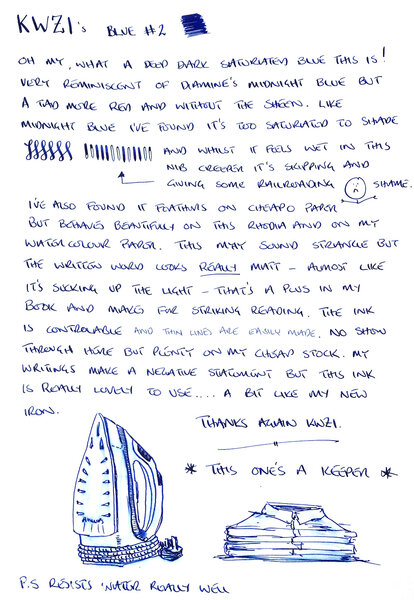 KWZI's BLUE #2
OH MY, WHAT A DEEP DARK SATURATED BLUE THIS IS!
VERY REMINISCENT OF DIAMINE'S MIDNIGHT BLUE BUT
A TAD MORE RED AND WITHOUT THE SHEEN. LIKE
MIDNIGHT BLUE I'VE FOUND IT'S TOO SATURATED TO SHADE
AND WHILST IT FEELS WET IN THIS
NIB CREEPER IT'S SKIPPING AND
GIVING SOME RAILROADING SHAME.
I'VE ALSO FOUND IT FEATHERS ON CHEAPO PAPER
BUT BEHAVES BEAUTIFULLY ON THIS RHODIA AND ON MY
WATERCOLOUR PAPER. THIS MAY SOUND STRANGE BUT
THE WRITTEN WORD LOOKS REALLY MATT - ALMOST LIKE
IT'S SUCKING UP THE LIGHT - THAT'S A PLUS IN MY
BOOK AND MAKES FOR STRIKING READING. THE INK
IS CONTROLABLE AND THIN LINES ARE EASILY MADE. NO SHOW
THROUGH HERE BUT PLENTY ON MY CHEAP STOCK. MY
WRITINGS MAKE A NEGATIVE STATEMENT BUT THIS INK
IS REALLY LOVELY TO USE.... A BIT LIKE MY NEW
IRON.
THANKS AGAIN KWZI.
* THIS ONE'S A KEEPER *
P.S RESISTS WATER REALLY WELL